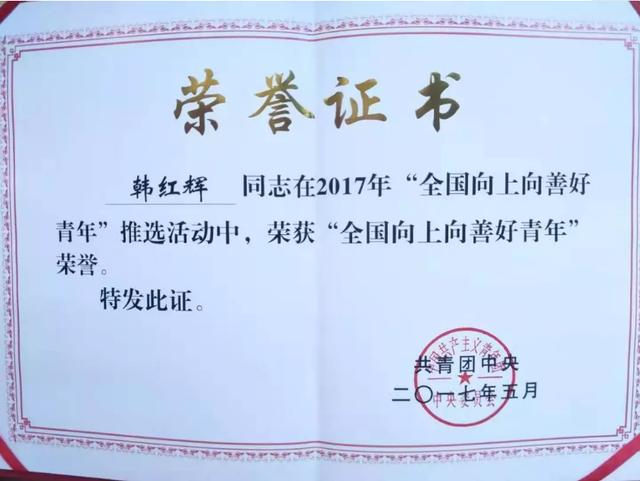 荣誉证书
韩红辉 同志在2017年“全国向上向善好
青年”推选活动中，荣获“全国向上向善好青年”
荣誉。
特发此证。
共青团中央
二〇一七年五月
中国共产主义青年团
中央委员会